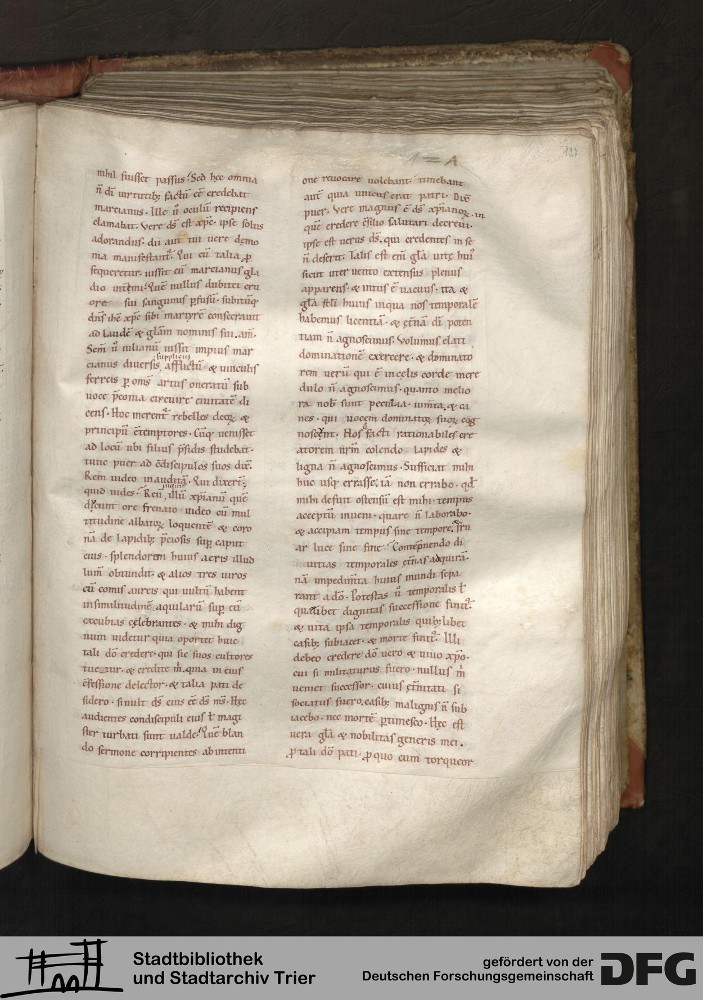 1 = A
nihil fuisset passus. Sed hęc omnia
n̄ di uirtutib; factū eē credebat
marcianus. Ille ū oculū recipiens
clamabat. Vere ds̄ est xp̄c. ipse solus
adorandus. dii aut̄ tui uere demo
nia manifestant᷑. Qui cū talia ꝑ
sequeretur. iussit eū marcianus gla
dio interimi. Quē nullus dubitet cru
ore sui sangunis ꝑfusū. subitūq
dn̄s hc̄ xp̄c sibi martyrē consecrauit
ad laudē & glām nominis sui. am̄.
Sem̄ ū iulianū iussit impius mar
cianus diuersis suppliciis afflictū & uinculis
ferreis ꝑ om̄s artus oneratū sub
uoce p̄conia circuire ciuitatē di
cens. Hoc merent᷑ rebelles deoꝝ &
principū c̄temptores. Cūq; uenisset
ad locū ubi filius p̄sidis studebat.
tunc puer ad c̄discipulos suos dix̄.
Rem uideo inauditā. Qui dixer̄;
quid uides. Reū inquit illū xp̄ianū quē
ducunt ore frenato uideo cū mul
titudine albatoꝝ loquentē & coro
nā de lapidib; p̄ciosis sup̄ caput
eius. splendorem huius aeris illud
lum̄ obtundit. & alios tres uiros
cū comis aureis qui uultū habent
in similitudinē aquilarū sup̄ eū
excubias celebrantes. & mihi dig
num uidetur quia oportet huic
tali dō credere. qui sic suos cultores
tuetur. & credite m̄. quia in eius
c̄fessione delector. & talia pati de
sidero. si mult ds̄ eius eē ds̄ m̄s. Hęc
audientes condiscipuli eius ł magi
ster turbati sunt ualde. Quē blan
do sermone corripientes ab intenti
one reuocare uolebant. timebant
aut̄ quia unicus erat patri. Dix̄
puer. Vere magnus ē ds̄ xp̄ianoꝝ. in
quē credere c̄silio salutari decreui.
ipse est uerus ds̄. qui credentes in se
n̄ deserit. Talis est eni glā uitę hui᷒
sicut uter uento extensus plenus
apparens. & intus ē uacuus. ita &
glā scl̄i huius in qua nos temporalē
habemus licentiā. & ęt̄nā di poten
tiam n̄ agnoscimus. Volumus elati
dominationē exercere. & dominato
rem uerū qui ē in celis corde incre
dulo n̄ agnoscimus. quanto melio
ra nob̄ sunt peculia. iumta & ca
nes. qui uocem dominatoꝝ suoꝝ cog
noscunt. Nos facti rationabiles cre
atorem nrm̄ colendo lapides &
ligna n̄ agnoscimus. Sufficiat mihi
huc usq; errasse. iā non errabo. qd̄
mihi defuit ostensū est mihi. tempus
acceptū inueni. quare n̄ laborabo.
& accipiam tempus sine tempore. fru
ar luce sine fine. Contēpnendo di
uitias temporales ęt̄nas adquirā.
nā impedim̄ta huius mundi sepa
rant a dō. Potestas n̄ temporalis ł
quęlibet dignitas successione finit᷑.
& uita ipsa temporalis quib; libet
casib; subiacet. & morte finit᷑. Illi
debeo credere dō uero & uiuo xp̄o.
cui si militaturus fuero. nullus m̄
ueniet successor. cuius ęt̄nitati si
sociatus fuero. casib; malignis n̄ sub
iacebo. nec mortē ꝑtimesco. Hęc est
uera glā & nobilitas generis mei.
ꝑ tali dō pati. ꝑ quo cum torqueor
Stadtbibliothek
und Stadtarchiv Trier
gefördert von der
Deutschen Forschungsgemeinschaft
DFG